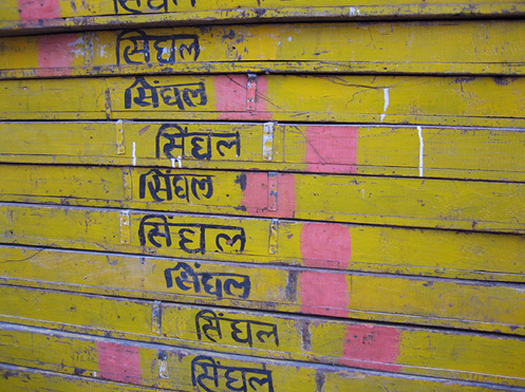 सिंघल
सिंघल
सिंघल
सिंघल
सिंघल
सिंघल
सिंघल
सिंघल